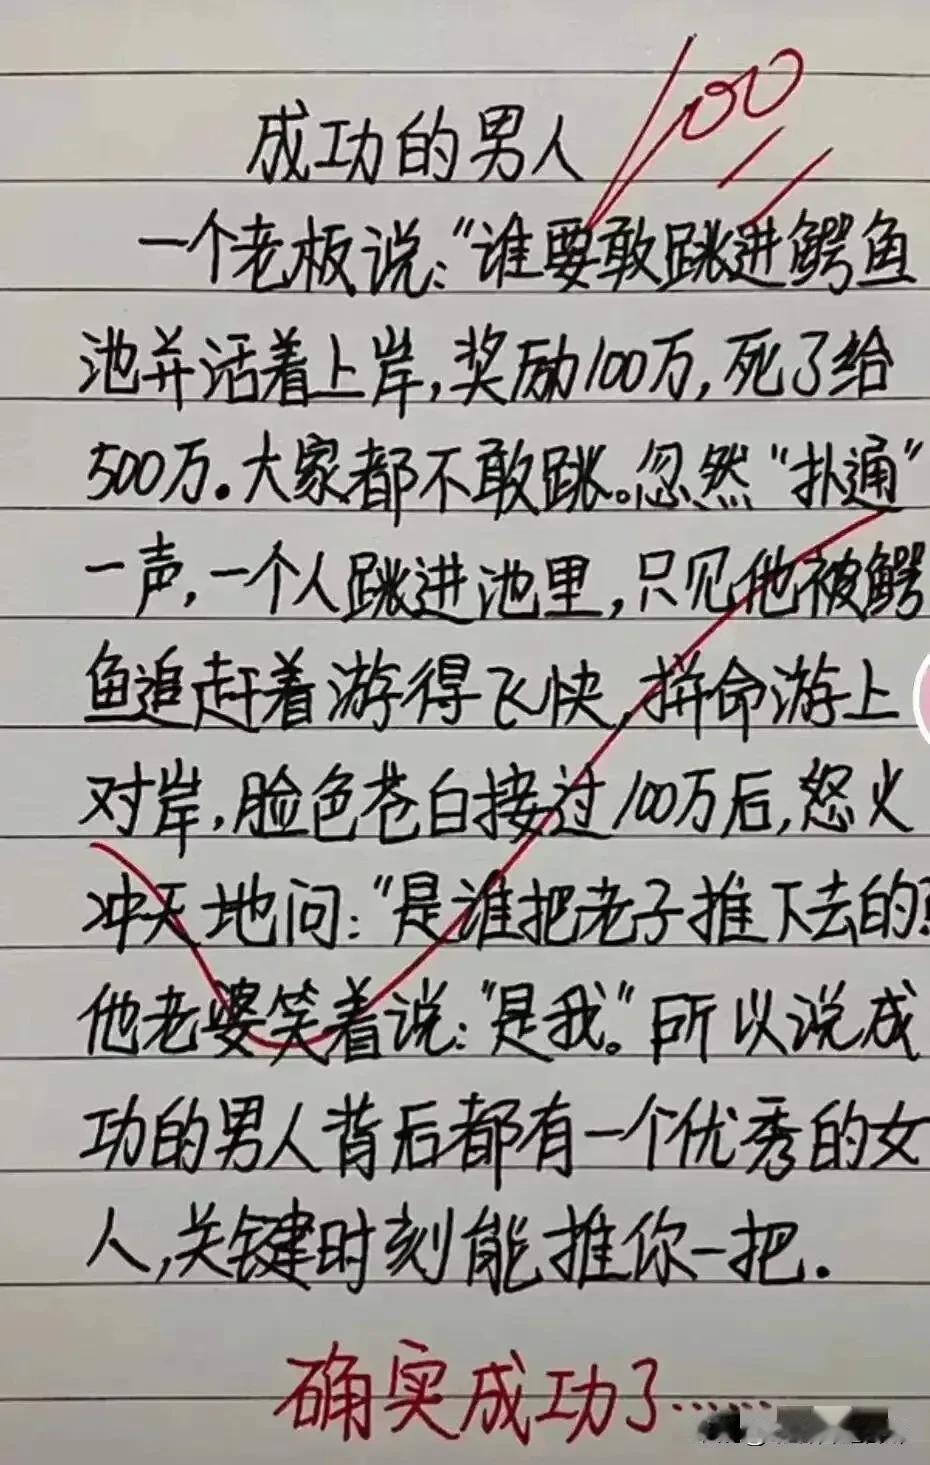 成功的男人
100
一个老板说:“谁要敢跳进鳄鱼
池并活着上岸,奖励100万,死了给
500万。大家都不敢跳。忽然“扑通”
一声,一个人跳进池里,只见他被鳄
鱼追赶着游得飞快,拼命游上
对岸,脸色苍白接过100万后,怒火
冲天地问:“是谁把老子推下去的?
他老婆笑着说:“是我”。所以说成
功的男人背后都有一个优秀的女
人,关键时刻能推你一把.
确实成功了……